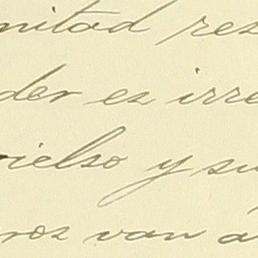 nitad res
der es irre
rielso y su
ros van a